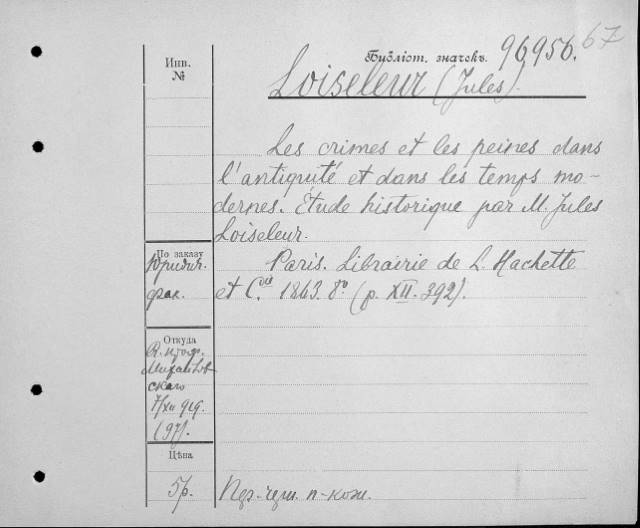 67
Библіот. значокъ. 96956.
Инв.
№
Loiseleur (Jules).
Les crimes et les peines dans
l'antiquité et dans les temps mo-
dernes. Étude historique par M. Jules
Loiseleur.
По заказу
Юридич.
фак.
Paris. Librairie de L. Hachette
et C.ie 1863. 8º (p. XII. 392).
Откуда
проф.
Михайлов-
скаго
7/XII 919.
(97).
Цѣна
5р.
п-кож.